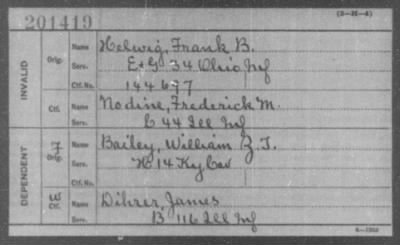 201419
(3—21—4)
INVALID
Orig.
Name Helwig, Frank B.
Serv. E & G 34 Ohio Inf
Ctf. No. 144677
Ctf.
Name Nodine, Frederick M.
Serv. C 44 Ill Inf
DEPENDENT
Orig.
Name Bailey, William Z. T.
Serv. 14 Ky Cav
Ctf. No.
W Ctf.
Name Dihrer, James
Serv. B 116 Ill Inf